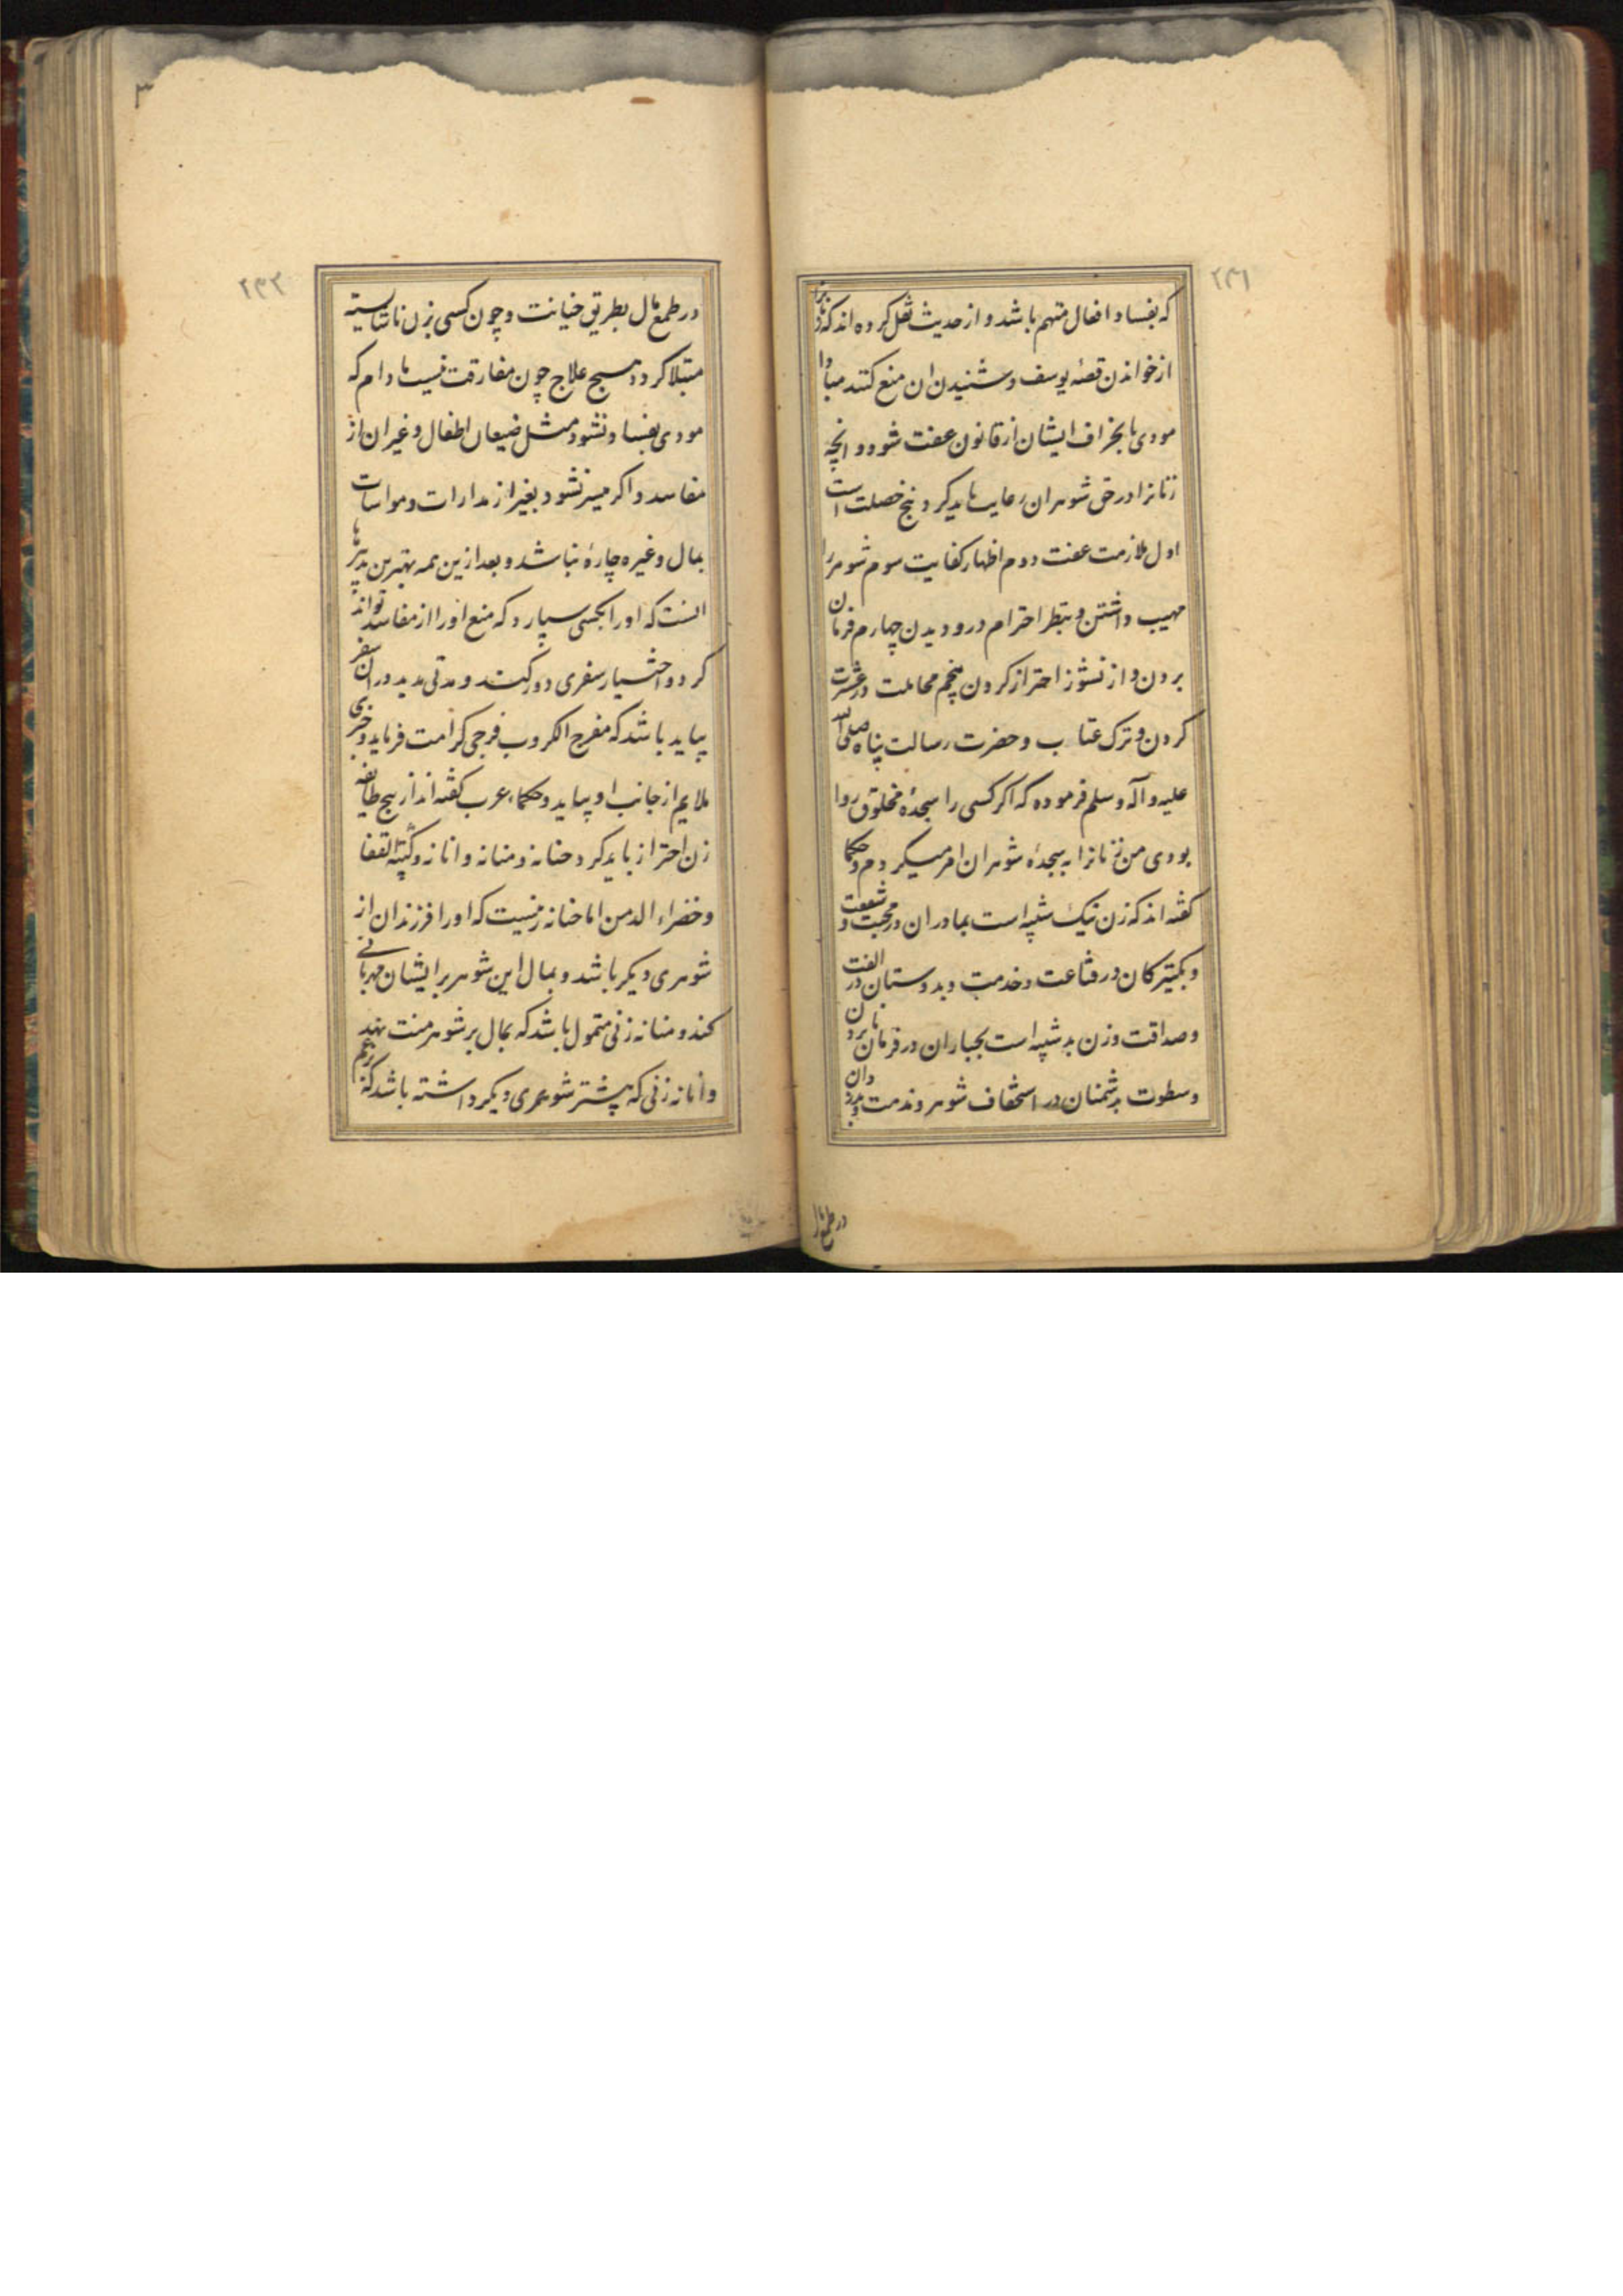 ۲۳۱
که بفساد افعال متهم باشد و از حدیث نقل کرده اند که زنانرا
از خواندن قصهٔ یوسف و شنیدن ان منع کنند مبادا
مودی بانحراف ایشان از قانون عفت شود و انچه
زنانرا در حق شوهران رعایت باید کرد پنج خصلت است
اول ملازمت عفت دوم اظهار کفایت سوم شوهر را
مهیب داشتن و بنظر احترام درو دیدن چهارم فرمان
بردن و از نشوز احتراز کردن پنجم مجاملت در عشرت
کردن و ترک عتاب و حضرت رسالت پناه صلی الله
علیه و آله و سلم فرموده که اگر کسی را سجدهٔ مخلوق روا
بودی من زنانرا به سجدهٔ شوهران امر میکردم و حکما
گفته اند که زن نیک شبیه است بمادران در محبت و شفقت
و بکنیزکان در قناعت و خدمت و بدوستان در الفت
و صداقت و زن بد شبیه است بجباران در نافرمان بردن
و سطوت بدشمنان در استخفاف شوهر و مذمت و بدزدان
در طمع مال
۲۳۲
در طمع مال بطریق خیانت و چون کسی بزن ناشایسته
مبتلا کردد هیچ علاج چون مفارقت نیست مادام که
مودی بفساد نشود مثل ضیعان اطفال و غیر ان از
مفاسد و اکر میسر نشود بغیر از مدارات و مواسات
بمال و غیره چارهٔ نباشد و بعد ازین همه بهترین تدبیرها
انست که او را بکسی سپارد که منع او را از مفاسد تواند
کرد و اختیار سفری دور کند و مدتی مدید در ان سفر
بپاید باشد که مفرج الکروب فرجی کرامت فرماید و خبری
ملایم از جانب او بیاید و حکماء عرب کفته اند از پنج طایفه
زن احتراز باید کرد حنانه و منانه و انانه و کیة القفا
و خضراء الدمن اما حنانه زنیست که او را فرزندان از
شوهری دیکر باشد و بمال این شوهر بر ایشان مهربانی
کند و منانه زنی متمول باشد که بمال بر شوهر منت نهد
و انانه زنی که پیشتر شوهری دیکر داشته باشد که بزعم